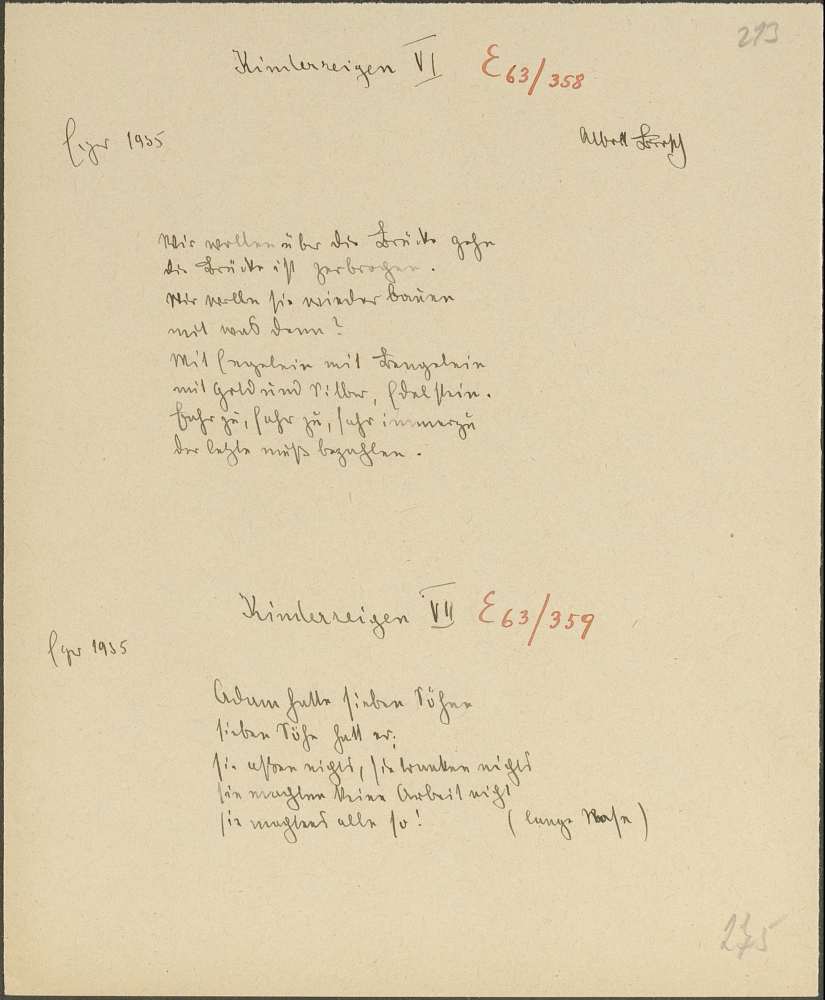 273
Kinderreigen VI E 63/358
Eger 1935 Albert Brosch
Wir wollen über die Brücke gehn
die Brücke ist zerbrochen.
Wir wolln sie wieder bauen
mit was denn?
Mit Engelein mit Bengelein
mit Gold und Silber, Edelstein.
Fahr zu, fahr zu, fahr immerzu
der letzte muß bezahlen.
Kinderreigen VII E 63/359
Eger 1935
Adam hatte sieben Söhne
sieben Söhn hatt er;
sie aßen nichts, sie tranken nichts
sie machten keine Arbeit nicht
sie machtens alle so! (lange Nase)
275